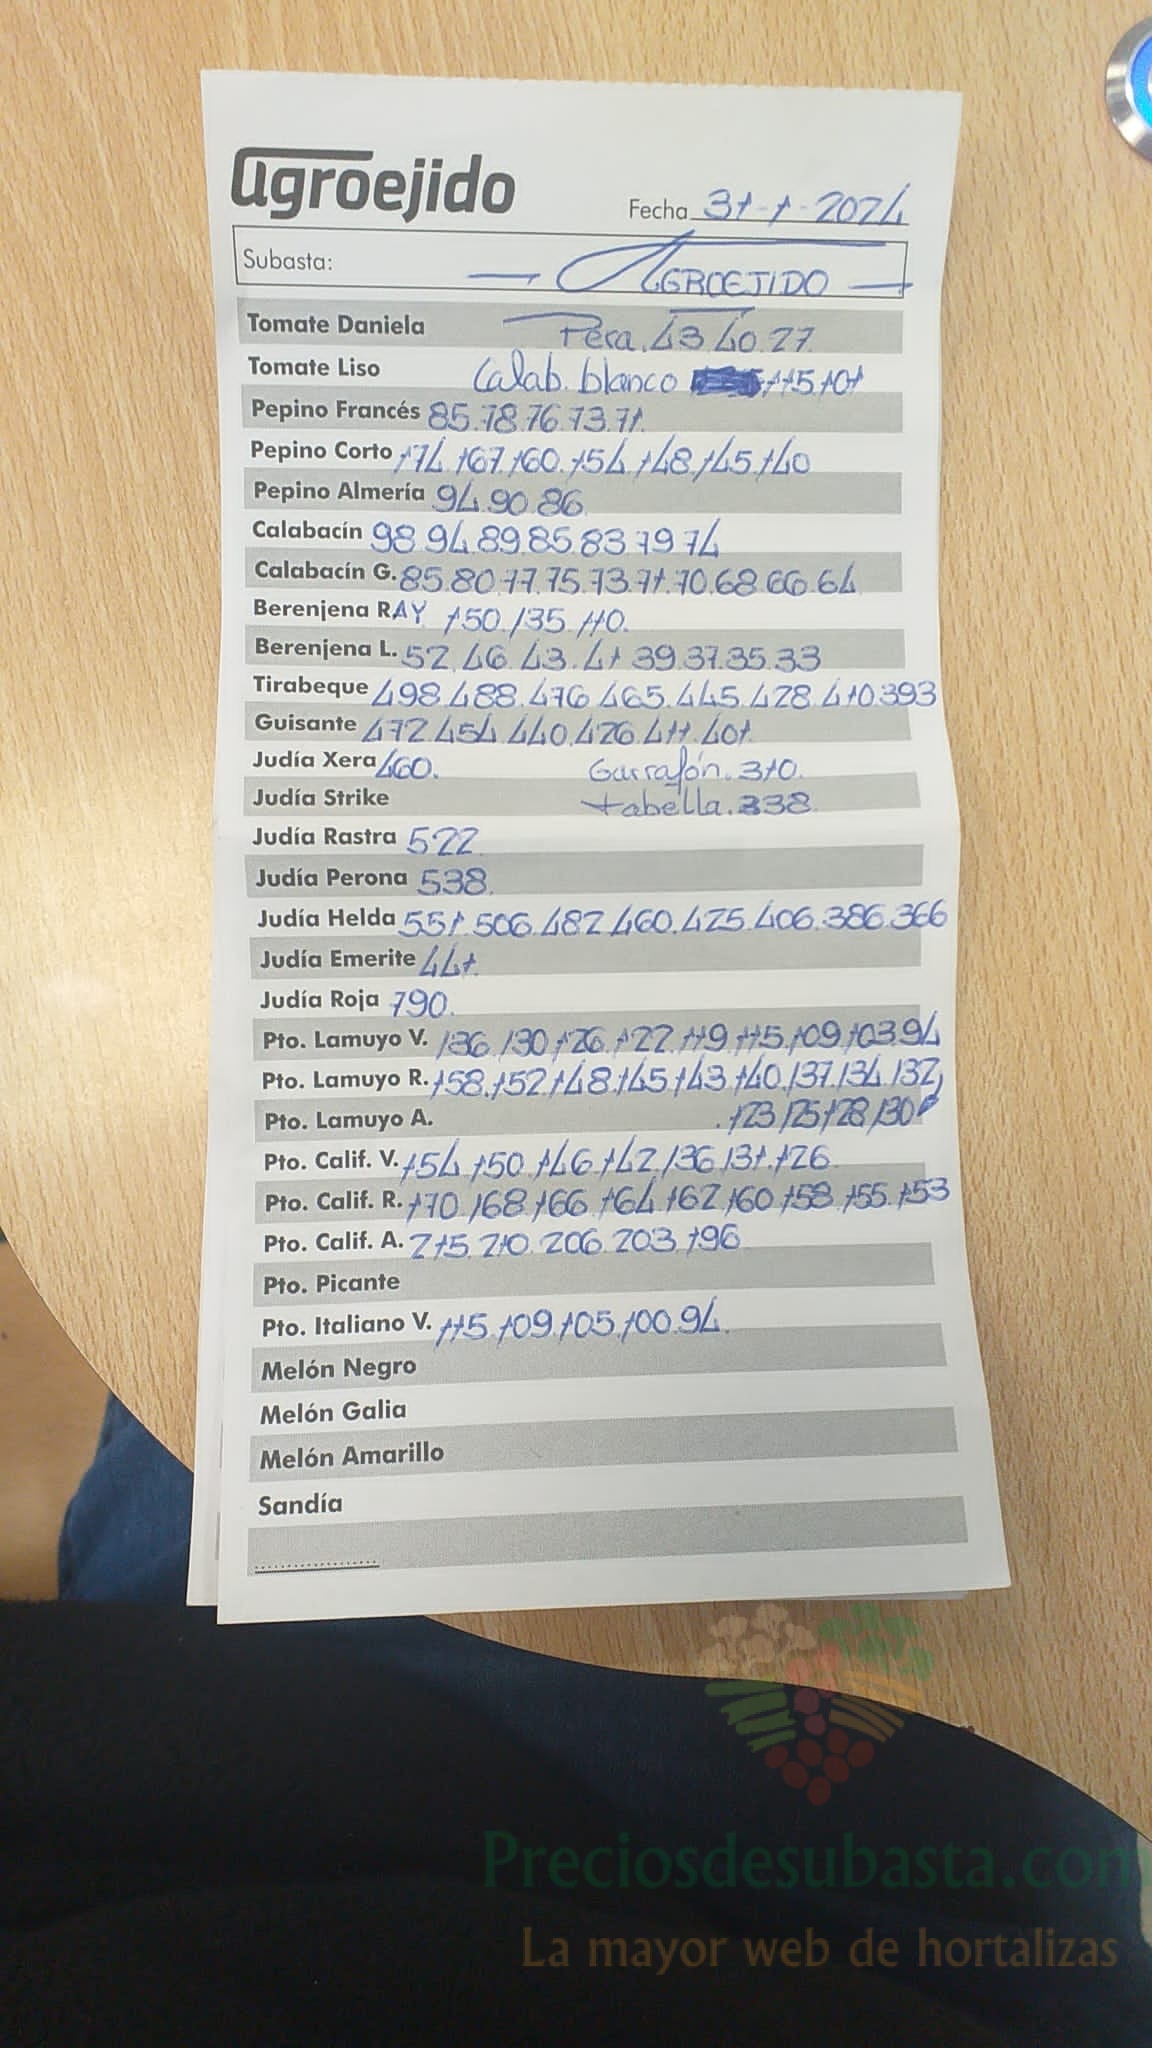 agroejido
Fecha 31-1-2024
Subasta: AGROEJIDO
Tomate Daniela Pera. 43 40.27
Tomate Liso Calab. blanco 115.101
Pepino Francés 85.78.76.73.71.
Pepino Corto 174 167.160.154 148.145.140
Pepino Almería 94.90.86
Calabacín 98.94.89.85.83.79.74
Calabacín G. 85.80.77.75.73.71.70.68.66.64
Berenjena RAY 150.135.110.
Berenjena L. 52.46.43.41 39.37.35.33
Tirabeque 498.488.476.465.445.428.410.393
Guisante 472.454.440.426.411.401
Judía Xera 460. Garrafón. 310.
Judía Strike tabella. 338.
Judía Rastra 522
Judía Perona 538.
Judía Helda 551.506.482.460.425.406.386.366
Judía Emerite 441.
Judía Roja 790.
Pto. Lamuyo V. 136.130.126.122.119.115.109.103.94
Pto. Lamuyo R. 158.152.148.145.143.140.137.134.132,
Pto. Lamuyo A. .123.125.128.130
Pto. Calif. V. 154.150.146.142.136.131.126
Pto. Calif. R. 170.168.166.164.162.160.158.155.153
Pto. Calif. A. 215.210.206.203.196
Pto. Picante
Pto. Italiano V. 115.109.105.100.94.
Melón Negro
Melón Galia
Melón Amarillo
Sandía
Preciosdesubasta.com
La mayor web de hortalizas